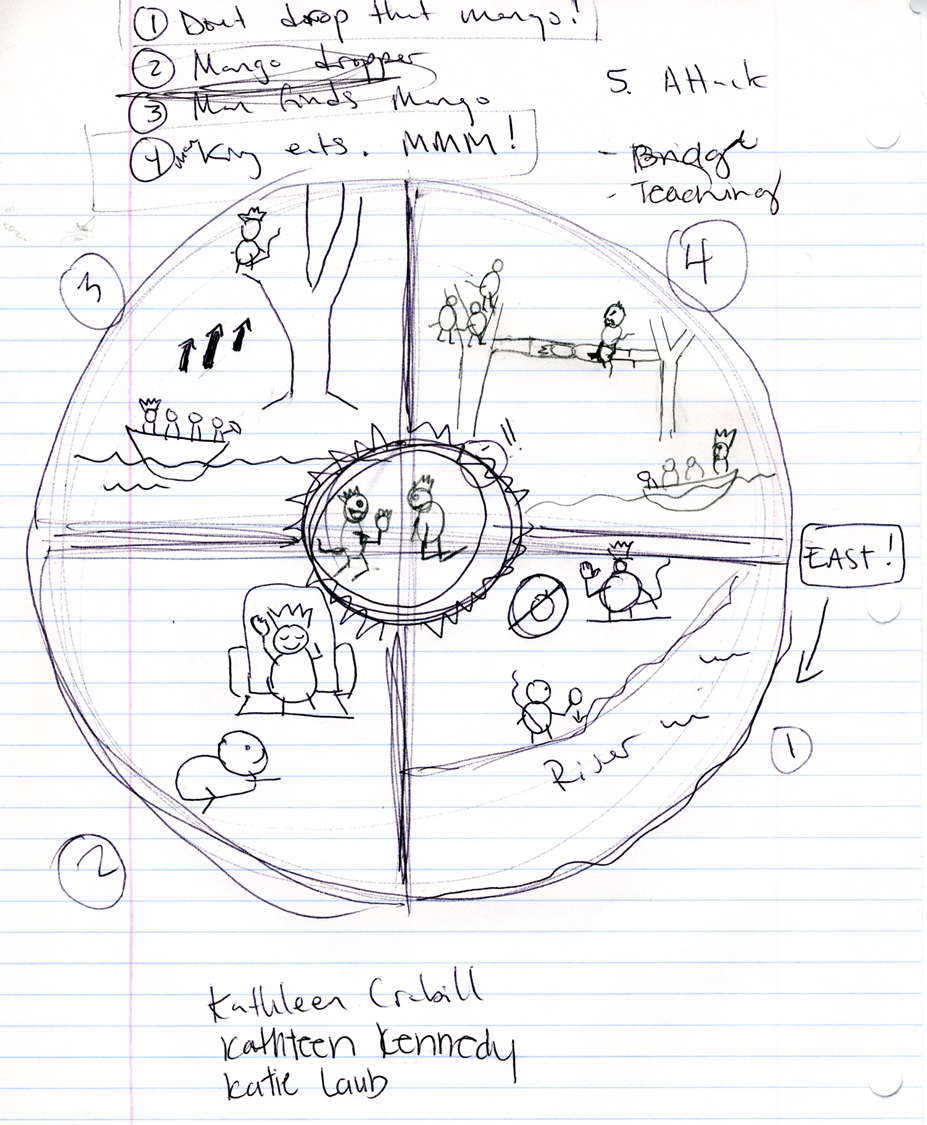 ① Dont drop that mango!
② Mango dropper
③ Man finds Mango
④ King eats. MMM!
5. Attack
- Bridge
- Teaching
3
4
!!
EAST!
River
1
2
Kathleen Crabill
Kathleen Kennedy
Katie Laub